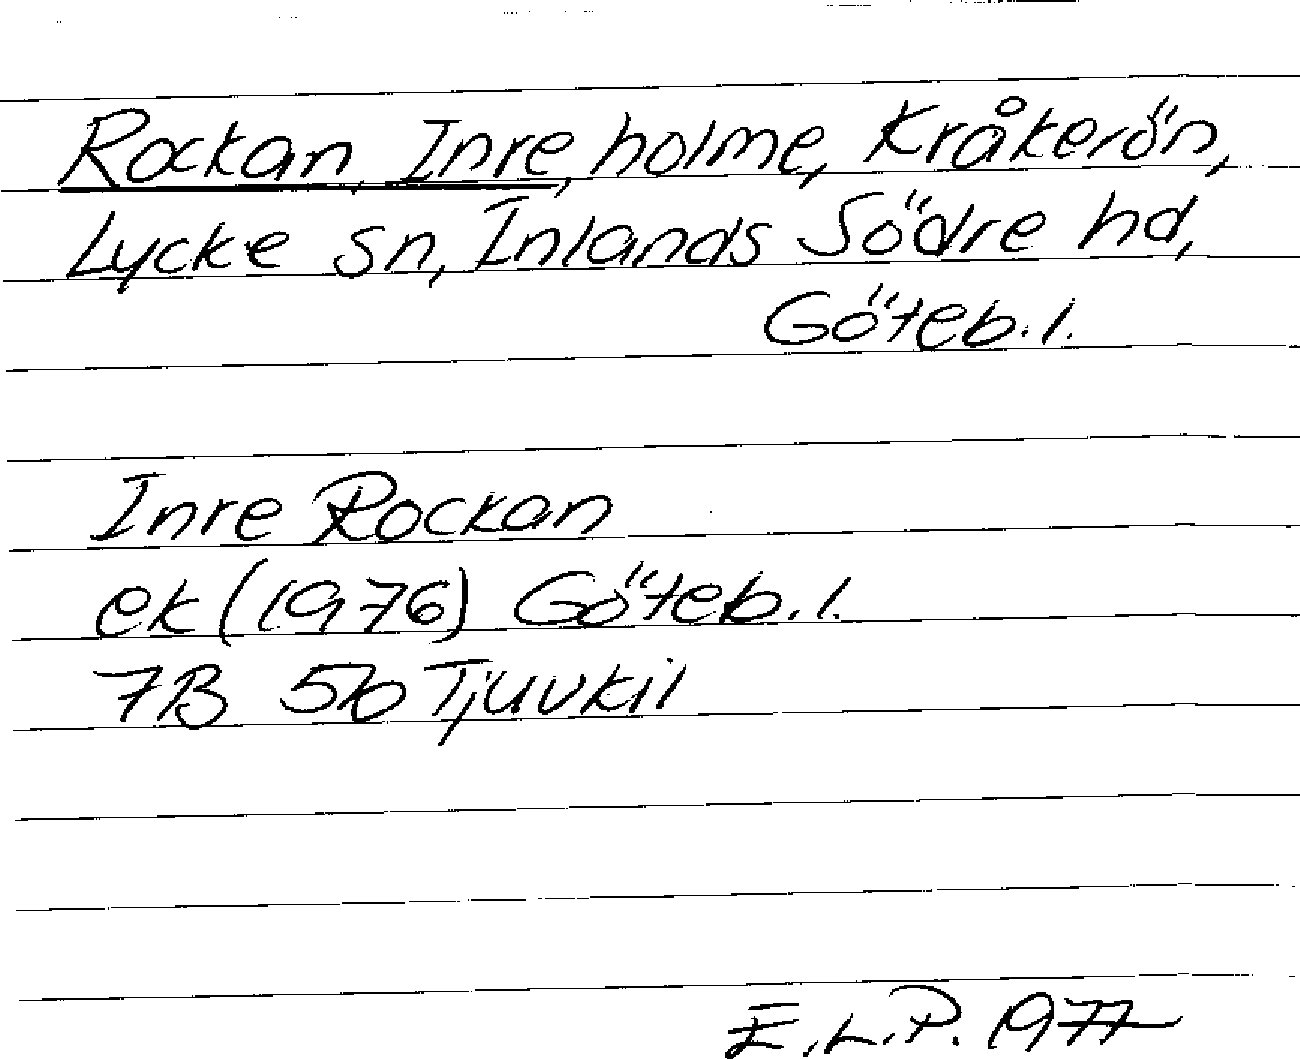 Rockan, Inre, holme, Kråkerön,
Lycke sn, Inlands Södre hd,
Göteb. l.
Inre Rockan
ek (1976) Göteb. l.
7B 5b Tjuvkil
E.L.P. 1977